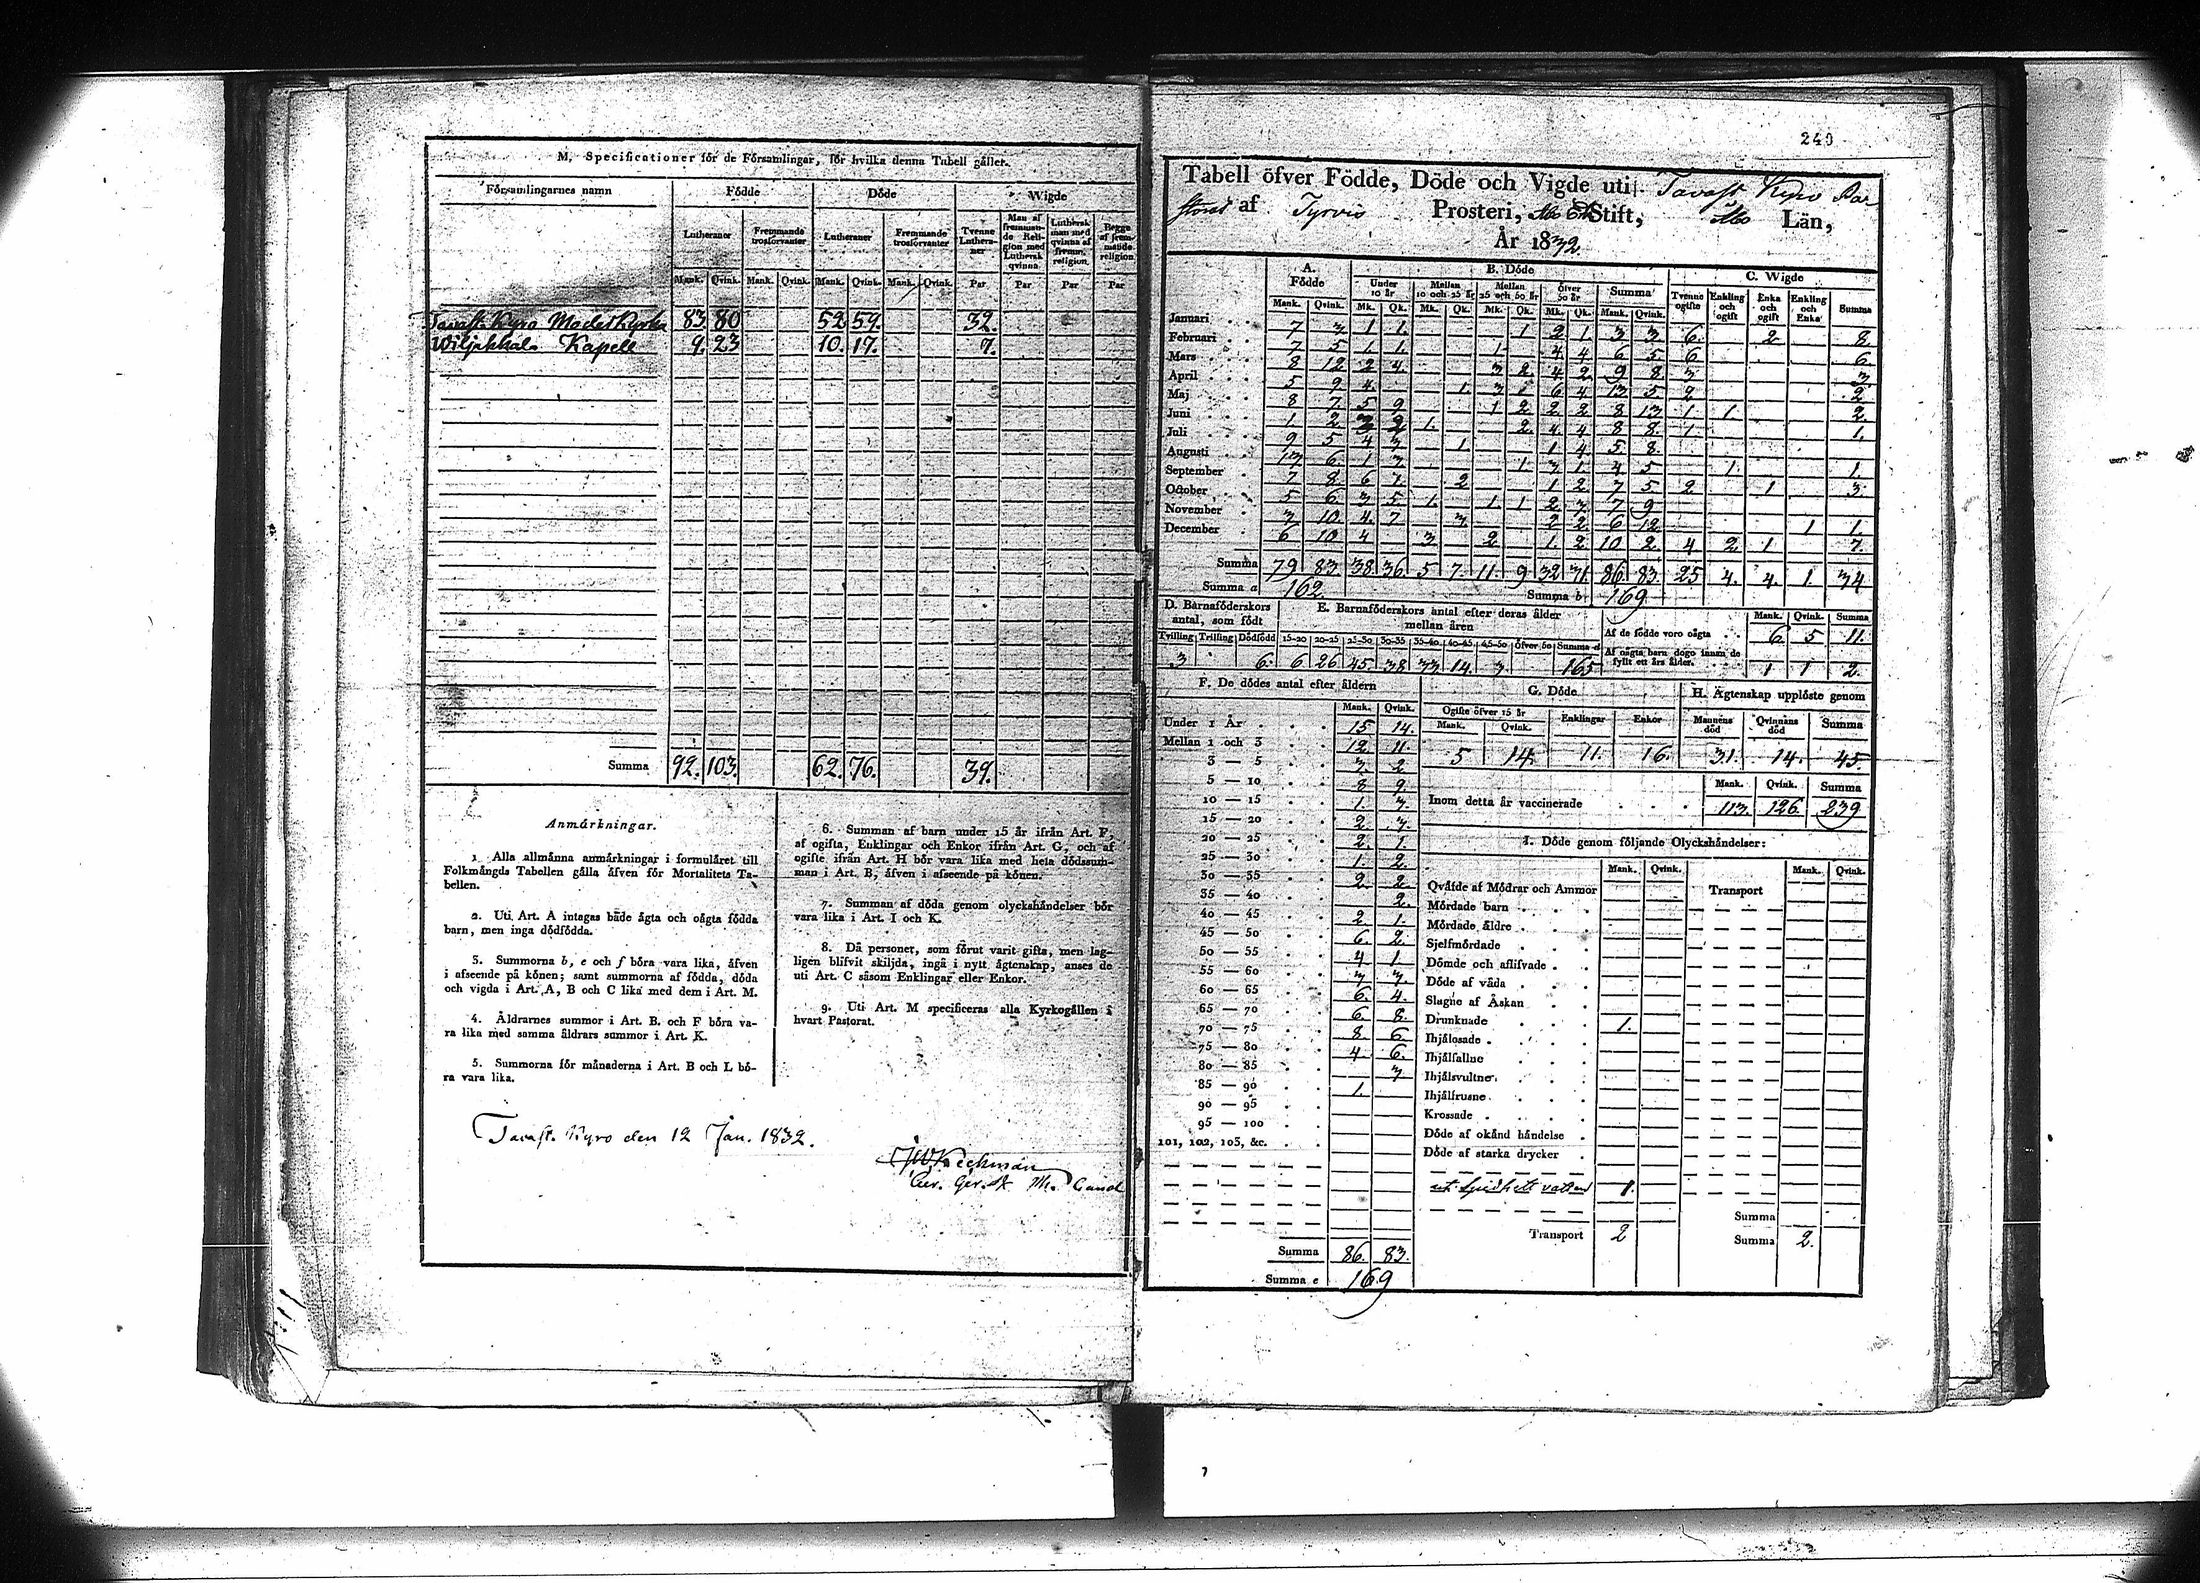 M. Specificationer för de Församlingar, för hvilka denna Tabell gäller.
Församlingarnes namn Födde Döde Wigde
Lutheraner Fremmande trosförvanter Lutheraner Fremmande trosförvanter Tvenne Lutheraner Man af fremmande Religion med Luthersk qvinna. Luthersk man med qvinna af fremm. religion. Begge af fremmande religion
Mank. Qvink. Mank. Qvink. Mank. Qvink. Mank. Qvink. Par Par Par Par
Tavast Kyro Moder Kyrka 83. 80 52 59. 32.
Kapell 9. 23 10. 17. 7.
Summa 92. 103. 62. 76. 39.
Anmärkningar.
1. Alla allmänna anmärkningar i formuläret till
Folkmängds Tabellen gälla äfven för Mortalitets Ta-
bellen.
2. Uti Art. A intagas både ägta och oägta födda
barn, men inga dödfödda.
3. Summorna b, e och f böra vara lika, äfven
i afseende på könen; samt summorna af födda, döda
och vigda i Art. A, B och C lika med dem i Art. M.
4. Åldrarnes summor i Art. B. och F böra va-
ra lika med samma åldrars summor i Art. K.
5. Summorna för månaderna i Art. B och L bö-
ra vara lika.
6. Summan af barn under 15 år ifrån Art. F,
af ogifta, Enklingar och Enkor ifrån Art. G, och af
ogifte ifrån Art. H bör vara lika med hela dödssum-
man i Art. B, äfven i afseende på könen.
7. Summan af döda genom olyckshändelser bör
vara lika i Art. I och K.
8. Då personer, som förut varit gifta, men lag-
ligen blifvit skiljda, ingå i nytt ägtenskap, anses de
uti Art. C såsom Enklingar eller Enkor.
9. Uti Art. M specificeras alla Kyrkogällen i
hvart Pastorat.
Tavast. Kyro den 12 Jan. 1832.
240
Tabell öfver Födde, Döde och Vigde uti Tavast Kyro Pas-
torat af Tyrvis Prosteri, Åbo Stift, Åbo Län,
År 1832.
A. Födde B. Döde C. Wigde
Under 10 år Mellan 10 och 25 år Mellan 25 och 50 år Öfver 50 år Summa Tvenne ogifte Enkling och ogift Enka och ogift Enkling och Enka Summa
Mank. Qvink. Mk. Qk. Mk. Qk. Mk. Qk. Mk. Qk. Mank. Qvink.
Januari 7 3 1 1 1 2 1 3 3 6. 2 8.
Februari 7 5 1 1. 1. 4 4 6 5 6 6.
Mars 8 12 2 4. 3 2 4 2 9 8. 3 3
April 5 9 4. 1. 3 1 6 4 13 5 2 2
Maj 8 7 5 9 1 2 2 2 8 13 1 1 2
Juni 1. 2 3 2 1. 2. 4 4 8 8. 1. 1.
Juli 9 5 4 3 1. 1 4 5 8.
Augusti 13 6. 1 3 1. 3 1. 4 5 1. 1.
September 7 8 6 1. 2 1 2. 7 5 2 1 3.
October 5 6 3 5 1. 1 1 2 3 7 9
November 3 10. 4. 7 3 2 2 6 12. 1 1.
December 6 10 4 3 2 1. 2 10 2 4 2 1 7.
Summa 79 83. 38. 36. 5 7. 11. 9 32 31. 86. 83. 25 4. 4. 1. 34
Summa a 162 Summa b 169
D. Barnaföderskors antal, som födt
Tvilling Trilling Dödfödd
3 6.
E. Barnaföderskors antal efter deras ålder mellan åren
15-20 20-25 25-30 30-35 35-40 40-45 45-50 Öfver 50 Summa d
6 26 45. 38 33 14. 3. 165
Mank. Qvink. Summa
Af de födde voro oägta 6 5 11.
Af oägta barn dogo innan de fyllt ett års ålder. 1 1 2.
F. De dödes antal efter åldern
Mank. Qvink.
Under 1 År 15 14.
Mellan 1 och 3 12 11
3 — 5 3 2
5 — 10 8 9
10 — 15 1. 3.
15 — 20 2 3.
20 — 25 2. 1.
25 — 30 1. 2.
30 — 35 2 2
35 — 40 2.
40 — 45 2 1.
45 — 50 6. 2.
50 — 55 4 1.
55 — 60 3 3.
60 — 65 6. 4.
65 — 70 6 8.
70 — 75 8 6
75 — 80 4 6.
80 — 85 3
85 — 90 1.
90 — 95
95 — 100
101, 102, 103, &c.
Summa 86. 83.
Summa e 169
G. Döde
Ogifte öfver 15 år Enklingar Enkor
Mank. Qvink.
5 14. 11. 16.
H. Ägtenskap upplöste genom
Mannens död Qvinnans död Summa
31. 14. 45.
Mank. Qvink. Summa
Inom detta år vaccinerade 113. 126. 239
I. Döde genom följande Olyckshändelser:
Mank. Qvink. Mank. Qvink.
Qväfde af Mödrar och Ammor Transport
Mördade barn
Mördade äldre
Sjelfmördade
Dömde och aflifvade
Döde af våda
Slagne af Åskan
Drunknade 1.
Ihjälosade
Ihjälfallne
Ihjälsvultne
Ihjälfrusne
Krossade
Döde af okänd händelse
Döde af starka drycker
1.
Summa
Transport 2 Summa 2.